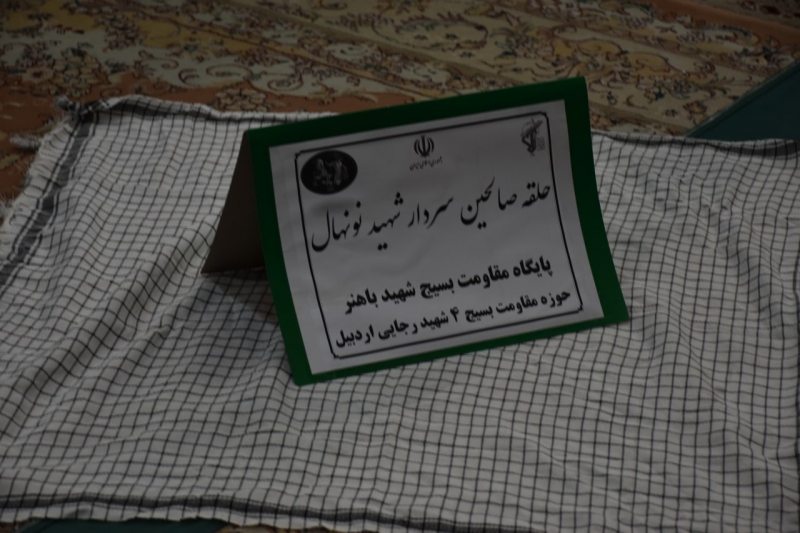 جمهوری اسلامی ایران
حلقه صالحین سردار شهید نونهال
پایگاه مقاومت بسیج شهید باهنر
حوزه مقاومت بسیج ۴ شهید رجایی اردبیل